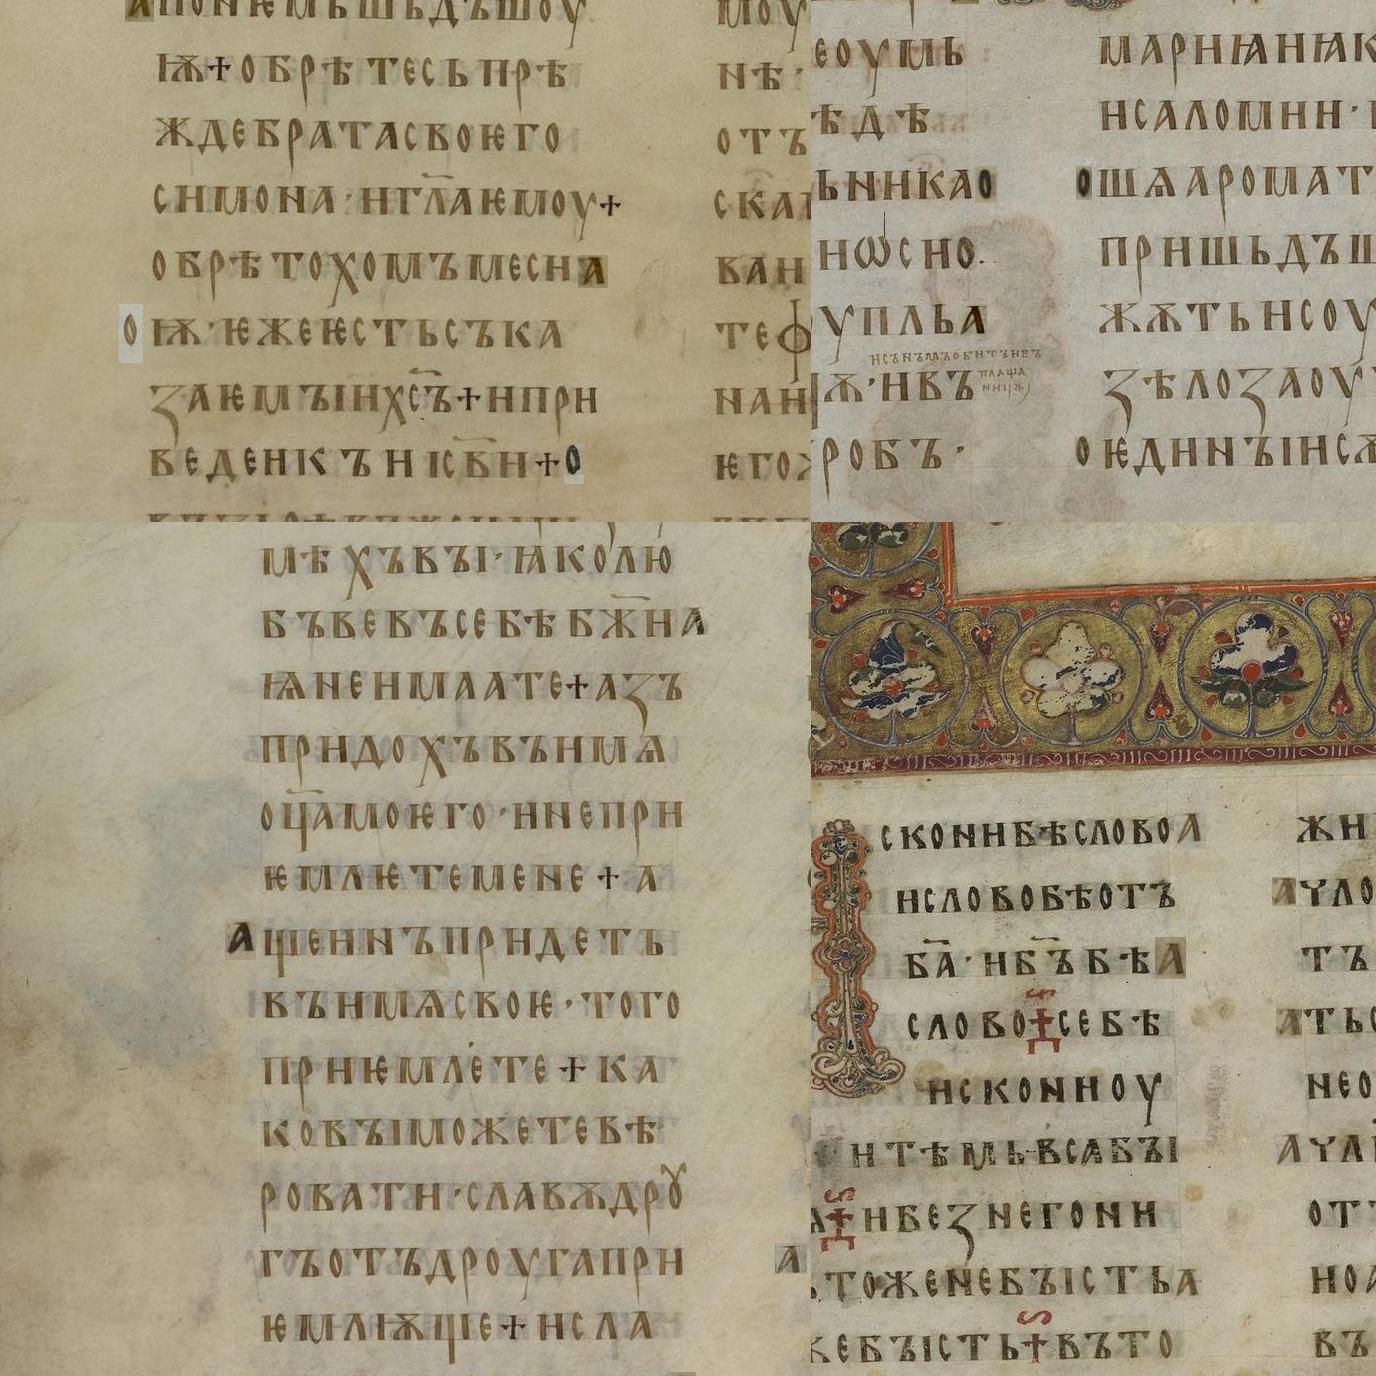 апонемьшьдъшоу
ѭ+обрѣтесьпрѣ
ждебратасвоѥго
симона·игл҃аѥмоу+
обрѣтохомъмесиа
о
ѭ·ѥжеѥстьсъка
заѥмъıихс҃ъ+ипри
веденкънıс҃ви+о
моу
нѣ·
отъ
ска
ван
теф
наи
ѥго
еоумь
ѣдѣ
ьникао
иѡсио.
упльа
исънѧ
плаща
ницѫ
ѭ·ивъ
робъ·
мариꙗиꙗк
исаломии·
ошѧаромат
пришьдъш
жѫтьисоу
зѣлозаоу
оѥдинъıисѧ
мѣхъвъı·ꙗколю
бъвевъсебѣбж҃иа
ѩнеимаате+азъ
придохъвъимѧ
оц҃амоѥго·инепри
ѥмлѥтемене+а
Ащеинъпридетъ
въимѧсвоѥ·того
приѥмлете+ка
ковъıможетевѣ
ровати·славѫдрꙋ
гъотъдроугапри
ѥмлѭще+исла
а
сконибѣсловоа
ислововѣотъ
ба҃·иб҃ъбѣа
слово+себѣ
искониоу
итѣмьвсѧбъı
а+ибезнегони
тоженебъıстьа
жебъıсть+въто
жи
аꙋло
тъ
атьс
нео
аꙋлі
от
ноа
въ